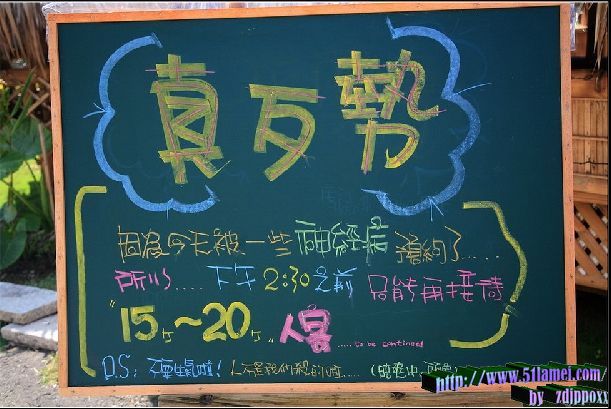 真歹勢
因為今天被一些神經病預約了.....
所以..... 下午2:30之前 只能再接待
"15ㄍ~20ㄍ" 人客 .....to be continued
P.S: 人不是我們殺的
http://www.51amei.com/
by zdippoxx